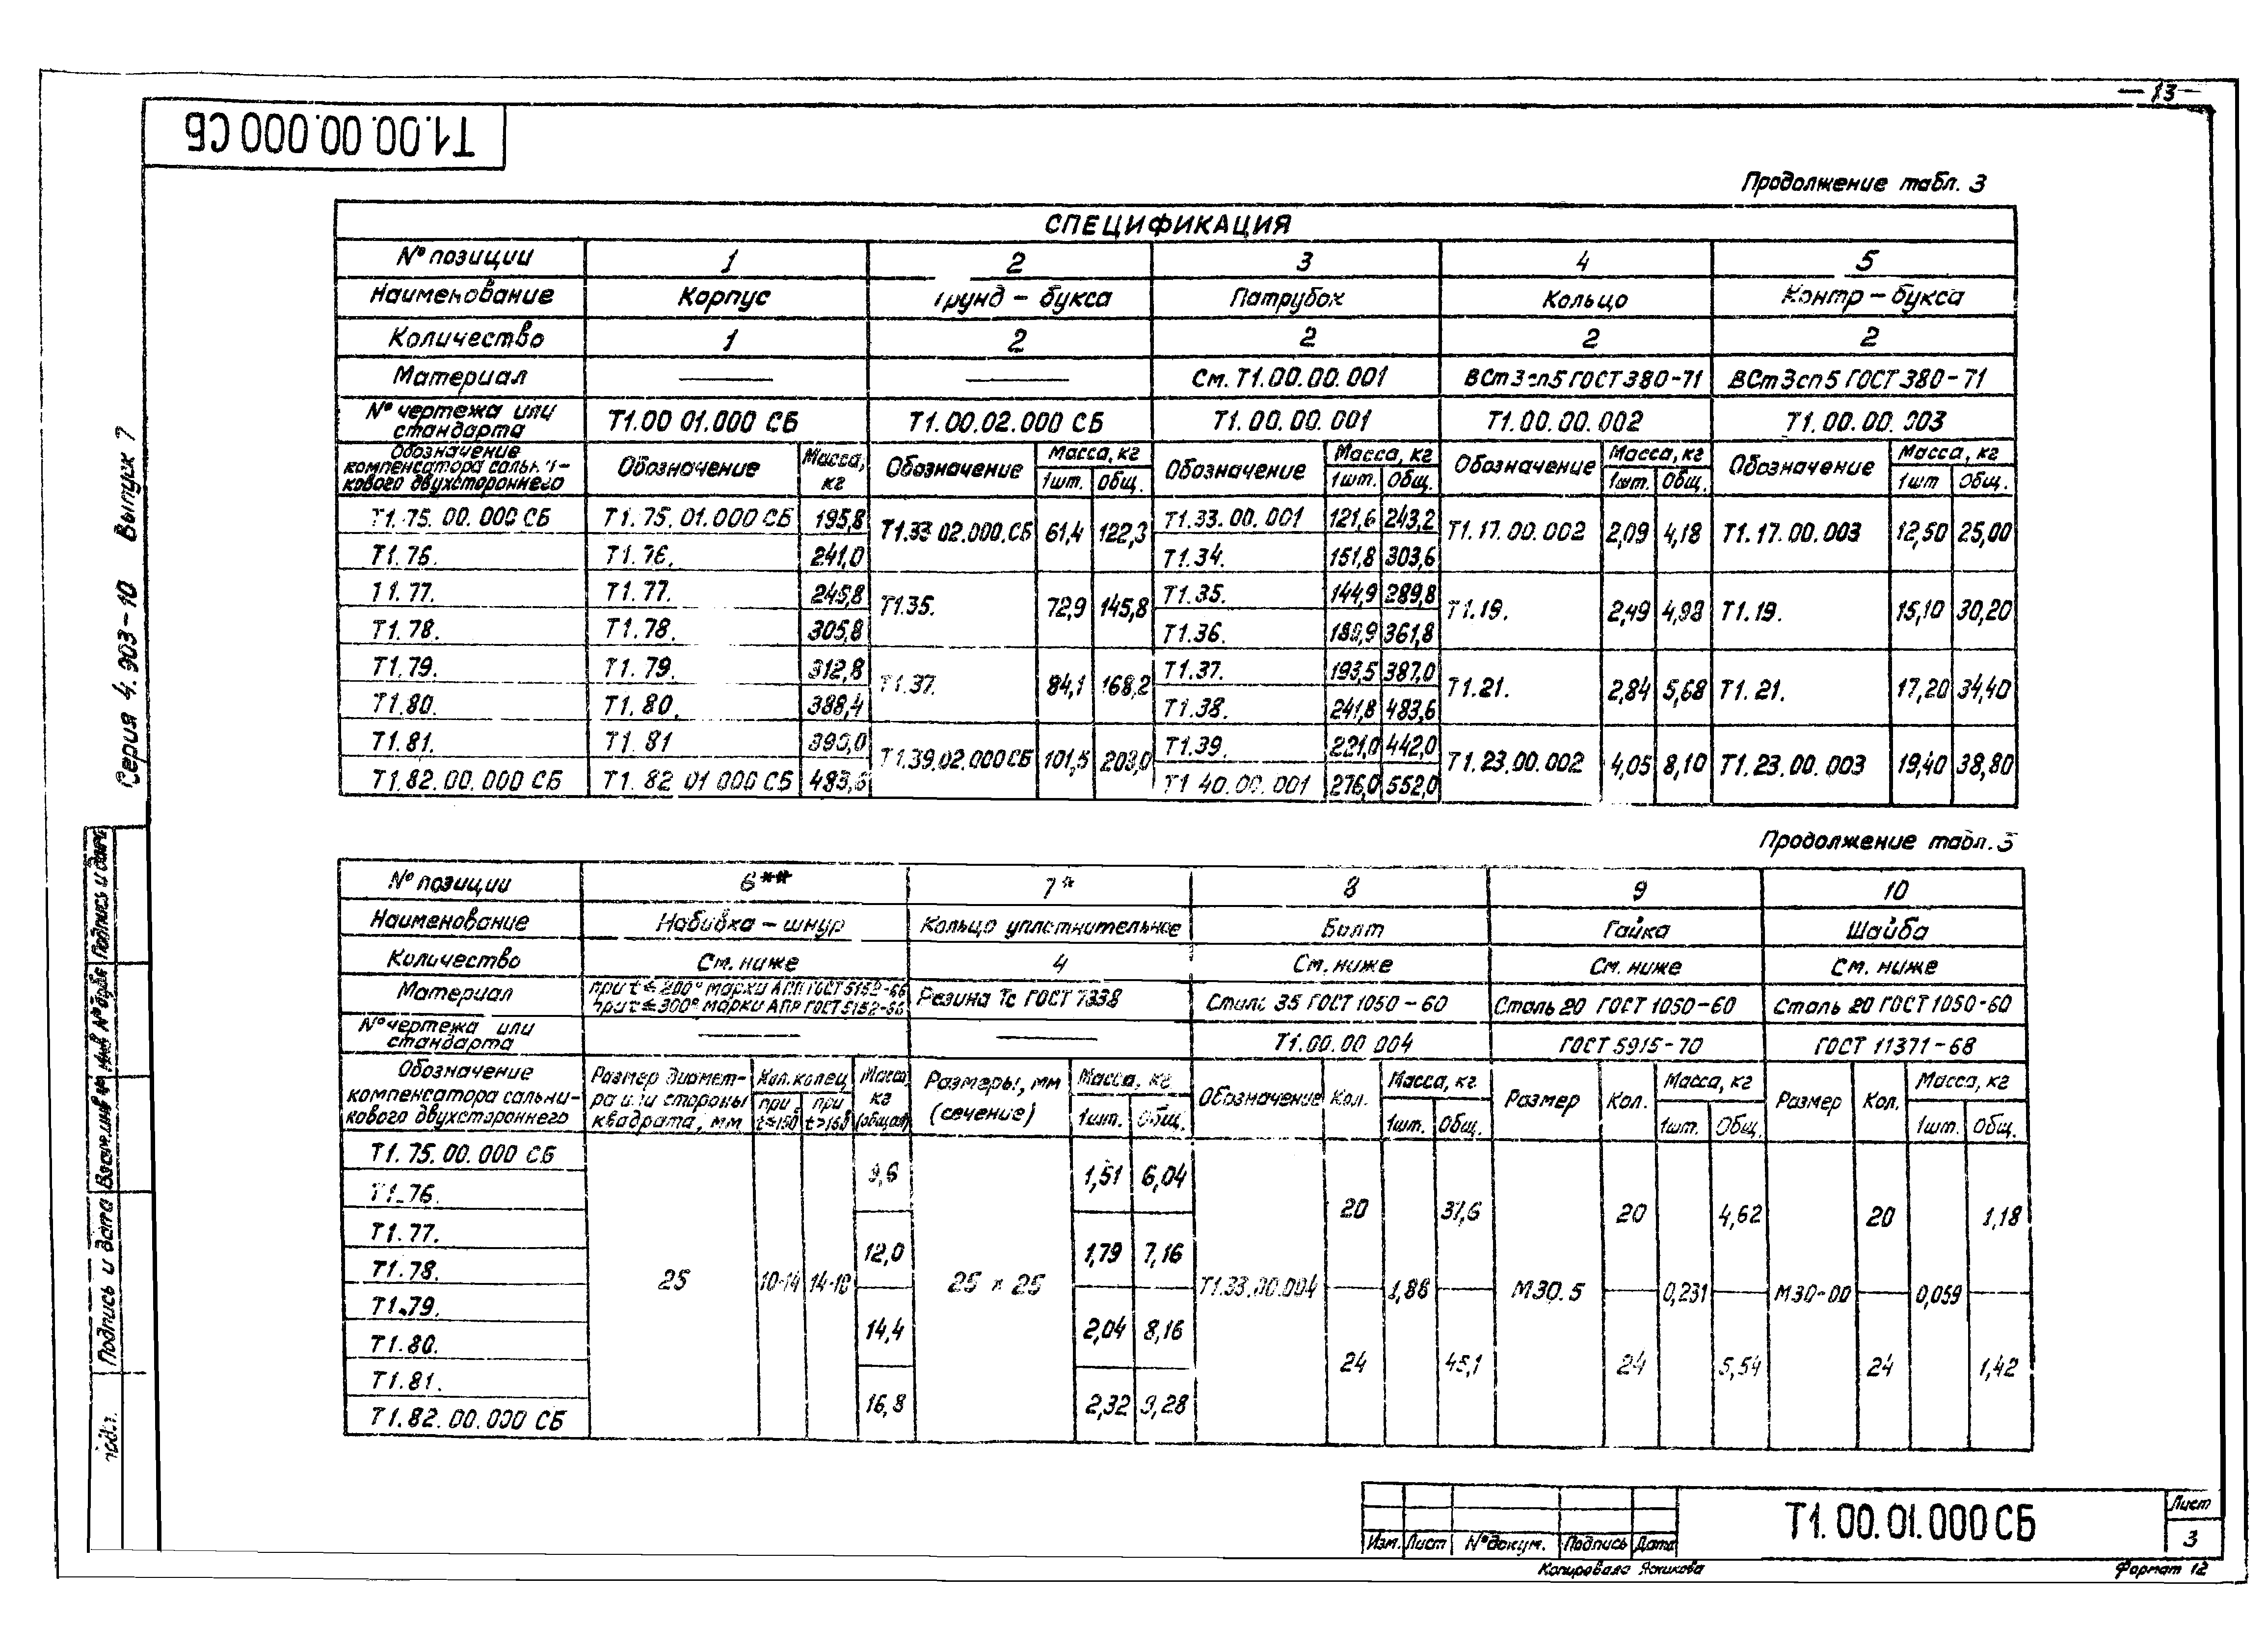 — 13 —
Т1.00.00.000 СБ
Продолжение табл. 3
СПЕЦИФИКАЦИЯ
№ позиции 1 2 3 4 5
Наименование Корпус Грунд-букса Патрубок Кольцо Контр-букса
Количество 1 2 2 2 2
Материал — — См. Т1.00.00.001 ВСт3сп5 ГОСТ 380-71 ВСт3сп5 ГОСТ 380-71
№ чертежа или стандарта Т1.00 01.000 СБ Т1.00.02.000 СБ Т1.00.00.001 Т1.00.00.002 Т1.00.00.003
Обозначение компенсатора сальникового двухстороннего Обозначение Масса, кг Обозначение Масса, кг 1шт. Общ. Обозначение Масса, кг 1шт. Общ. Обозначение Масса, кг 1шт. Общ. Обозначение Масса, кг 1шт Общ.
Т1.75.00.000 СБ Т1.75.01.000 СБ 195,8 Т1.33 02.000.СБ 61,4 122,3 Т1.33.00.001 121,6 243,2 Т1.17.00.002 2,09 4,18 Т1.17.00.003 12,50 25,00
Т1.76. Т1.76. 241,0 Т1.34. 151,8 303,6
Т1.77. Т1.77. 245,8 Т1.35. 72,9 145,8 Т1.35. 144,9 289,8 Т1.19. 2,49 4,98 Т1.19. 15,10 30,20
Т1.78. Т1.78. 305,8 Т1.36. 180,9 361,8
Т1.79. Т1.79. 312,8 Т1.37. 84,1 168,2 Т1.37. 193,5 387,0 Т1.21. 2,84 5,68 Т1.21. 17,20 34,40
Т1.80. Т1.80. 388,4 Т1.38. 241,8 483,6
Т1.81. Т1.81 390,0 Т1.39.02.000 СБ 101,5 203,0 Т1.39. 221,0 442,0 Т1.23.00.002 4,05 8,10 Т1.23.00.003 19,40 38,80
Т1.82.00.000 СБ Т1.82 01 000 СБ 483,6 Т1 40.00.001 276,0 552,0
Продолжение табл. 3
№ позиции 6** 7* 8 9 10
Наименование Набивка-шнур Кольцо уплотнительное Болт Гайка Шайба
Количество См. ниже 4 См. ниже См. ниже См. ниже
Материал при t ≤ 200° марки АПП ГОСТ 5152-66 при t ≤ 300° марки АПР ГОСТ 5152-66 Резина Тс ГОСТ 7338 Сталь 35 ГОСТ 1050-60 Сталь 20 ГОСТ 1050-60 Сталь 20 ГОСТ 1050-60
№ чертежа или стандарта — — Т1.00.00 004 ГОСТ 5915-70 ГОСТ 11371-68
Обозначение компенсатора сальникового двухстороннего Размер диаметра или стороны квадрата, мм Кол. колец при t≤150 при t>150 Масса кг (общая) Размеры, мм (сечение) Масса, кг 1шт. Общ. Обозначение Кол. Масса, кг 1шт. Общ. Размер Кол. Масса, кг 1шт. Общ. Размер Кол. Масса, кг 1шт. Общ.
Т1.75.00.000 СБ 9,6 1,51 6,04
Т1.76. 20 37,6 20 4,62 20 1,18
Т1.77. 12,0 1,79 7,16
Т1.78. 25 10-14 14-18 25 × 25 Т1.33.00.004 1,88 М30.5 0,231 М30-00 0,059
Т1.79. 14,4 2,04 8,16
Т1.80. 24 45,1 24 5,54 24 1,42
Т1.81. 16,8 2,32 9,28
Т1.82.00.000 СБ
Изм. Лист № докум. Подпись Дата
Т1.00.01.000 СБ
Лист
3
Копировала
Формат 12
Серия 4.903-10 Выпуск 7
Подпись и дата
Взам. инв. №
Инв. № дубл.
Подпись и дата
подл.